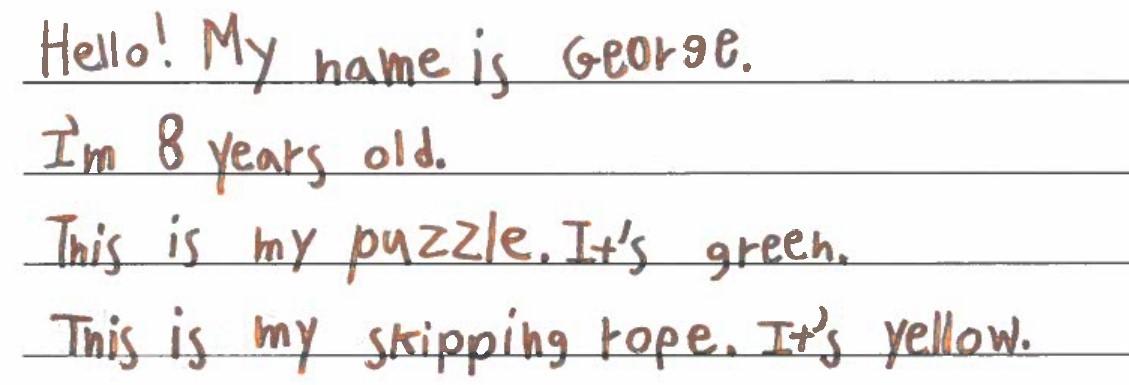 Hello! My name is George.
I'm 8 years old.
This is my puzzle. It's green.
This is my skipping rope. It's yellow.